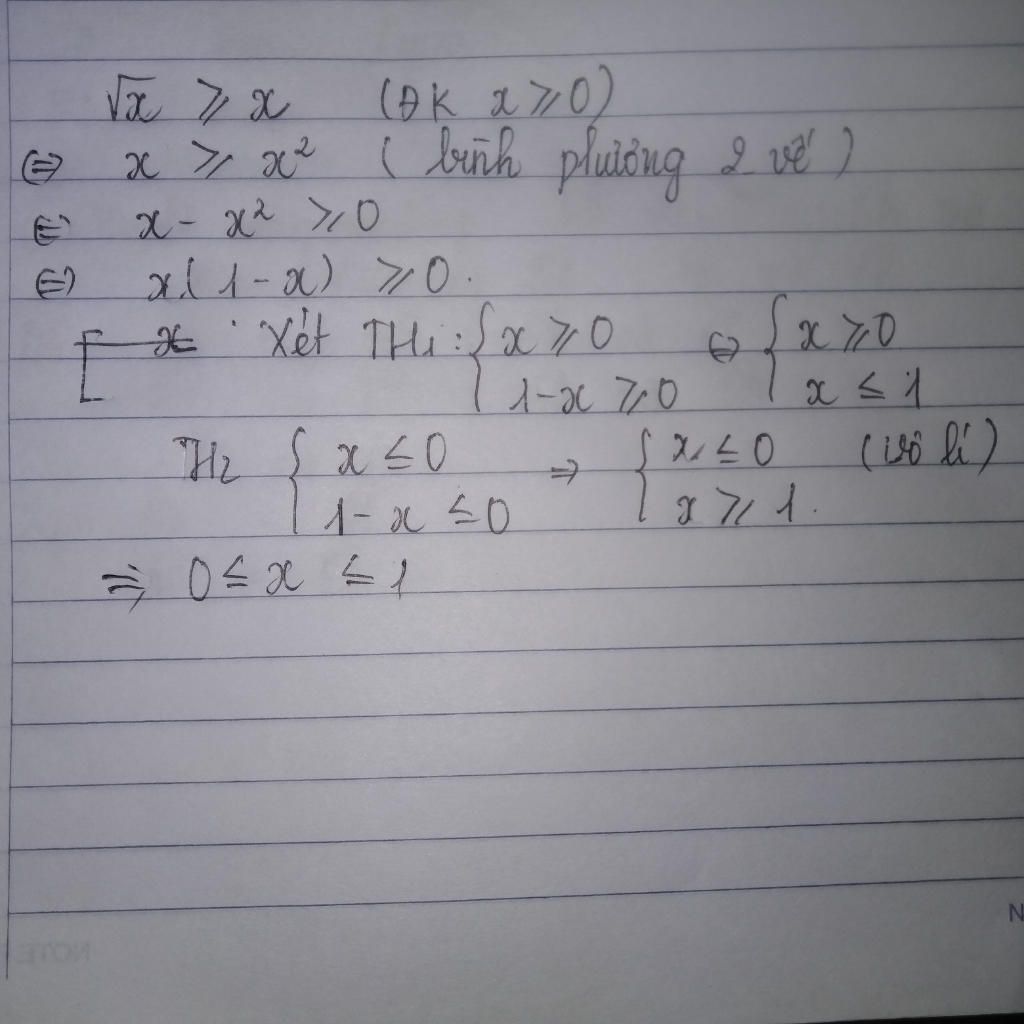 √x ⩾ x (ĐK x ⩾ 0)
⇔ x ⩾ x² (bình phương 2 vế)
⇔ x - x² ⩾ 0
⇔ x(1 - x) ⩾ 0.
[ x Xét TH₁: { x ⩾ 0 ; 1-x ⩾ 0 ⇔ { x ⩾ 0 ; x ≤ 1
TH₂ { x ≤ 0 ; 1-x ≤ 0 ⇒ { x ≤ 0 ; x ⩾ 1. (vô lí)
⇒ 0 ≤ x ≤ 1
N
NOTE